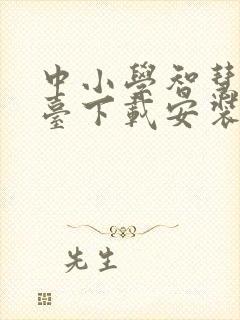 中小學智慧
臺下載安裝
先生